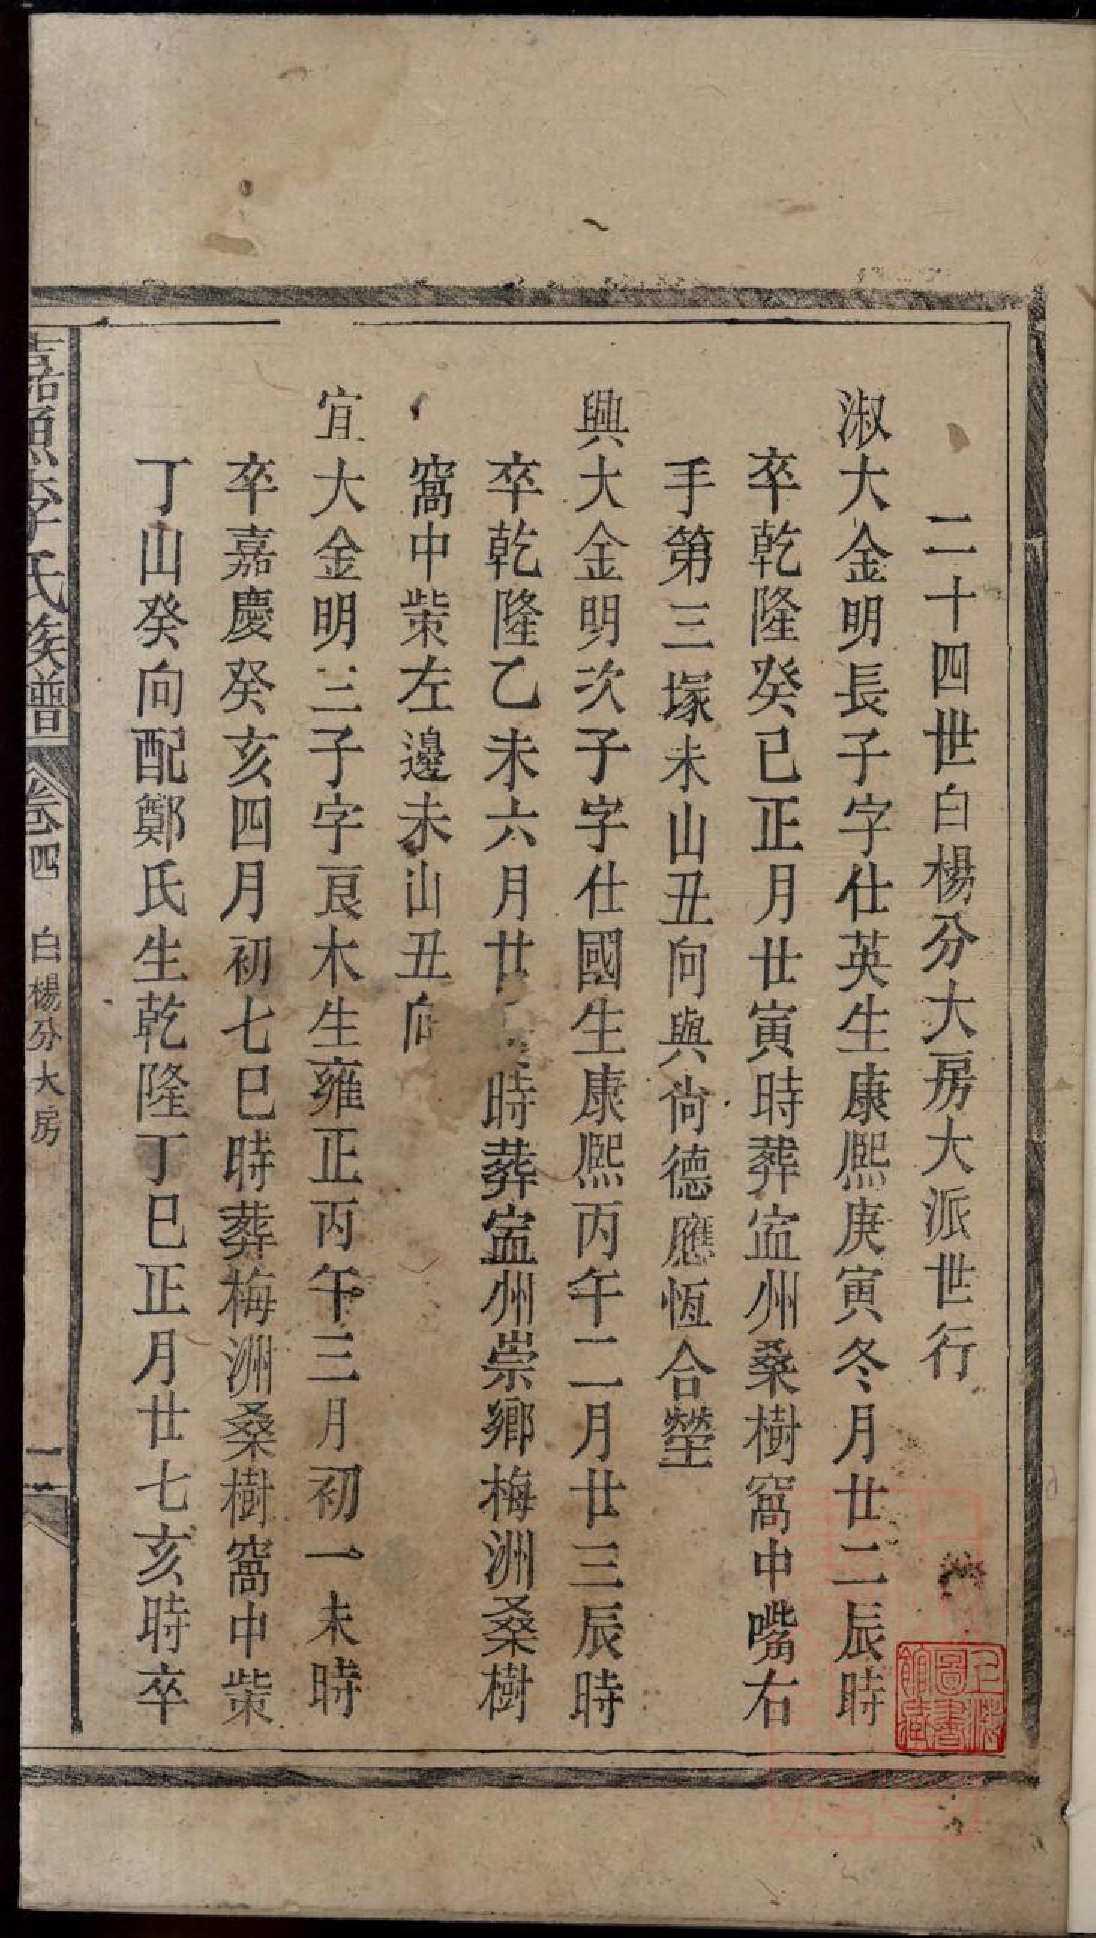 二十四世白楊分大房大派世行
淑大金明長子字仕英生康熙庚寅冬月廿二辰時
卒乾隆癸巳正月廿寅時葬寍州桑樹窩中嘴右
手第三塚未山丑向與尚德應恆合塋
興大金明次子字仕國生康熙丙午二月廿三辰時
卒乾隆乙未六月廿時葬寍州崇鄉梅洲桑樹
窩中柴左邊未山丑向
宜大金明三子字艮木生雍正丙午三月初一未時
卒嘉慶癸亥四月初七巳時葬梅洲桑樹窩中柴
丁山癸向配鄭氏生乾隆丁巳正月廿七亥時卒
嘉源李氏族譜 卷四 白楊分大房 一
上海圖書館藏